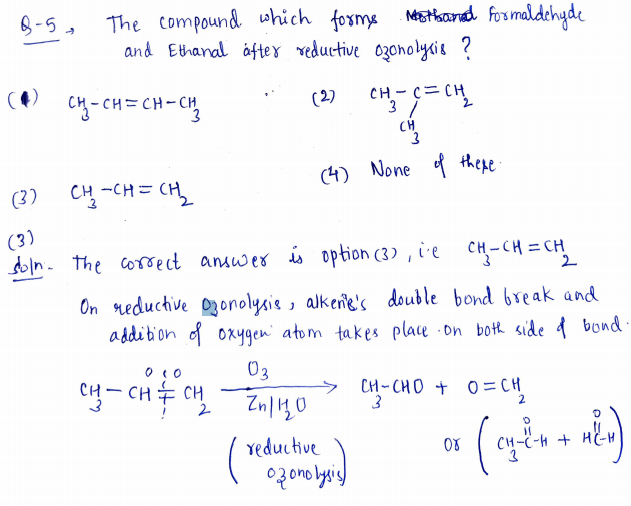 Q-5, The compound which forms Methanal Formaldehyde
and Ethanal after reductive ozonolysis ?
(1) CH3-CH=CH-CH3 (2) CH3-C=CH2
CH3
(3) CH3-CH=CH2 (4) None of these.
(3)
Soln- The correct answer is option (3), i.e CH3-CH=CH2
On reductive Ozonolysis, alkene's double bond break and
addition of oxygen atom takes place on both side of bond.
O O
CH3-CH=CH2 O3 Zn/H2O → CH3-CHO + O=CH2
(reductive ozonolysis)
Or (CH3-C-H + HC-H)
O O